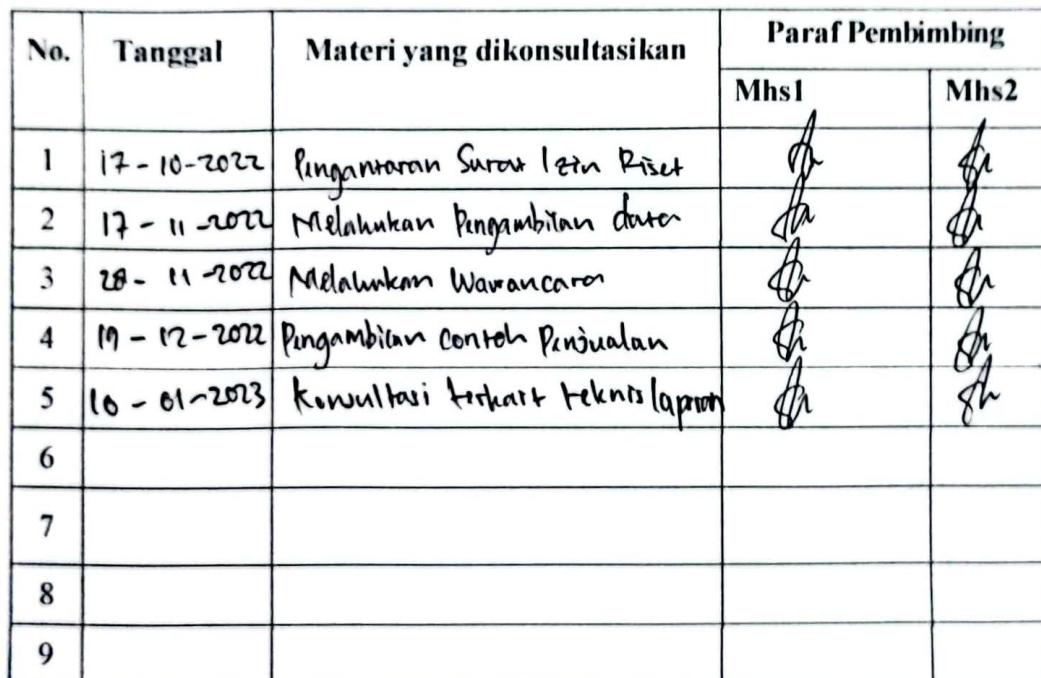 No. Tanggal Materi yang dikonsultasikan Paraf Pembimbing
Mhs1 Mhs2
1 17-10-2022 Pengantaran Surat Izin Riset
2 17-11-2022 Melakukan Pengambilan data
3 28-11-2022 Melakukan Wawancara
4 19-12-2022 Pengambilan contoh Penjualan
5 10-01-2023 Konsultasi terkait teknis laporan
6
7
8
9